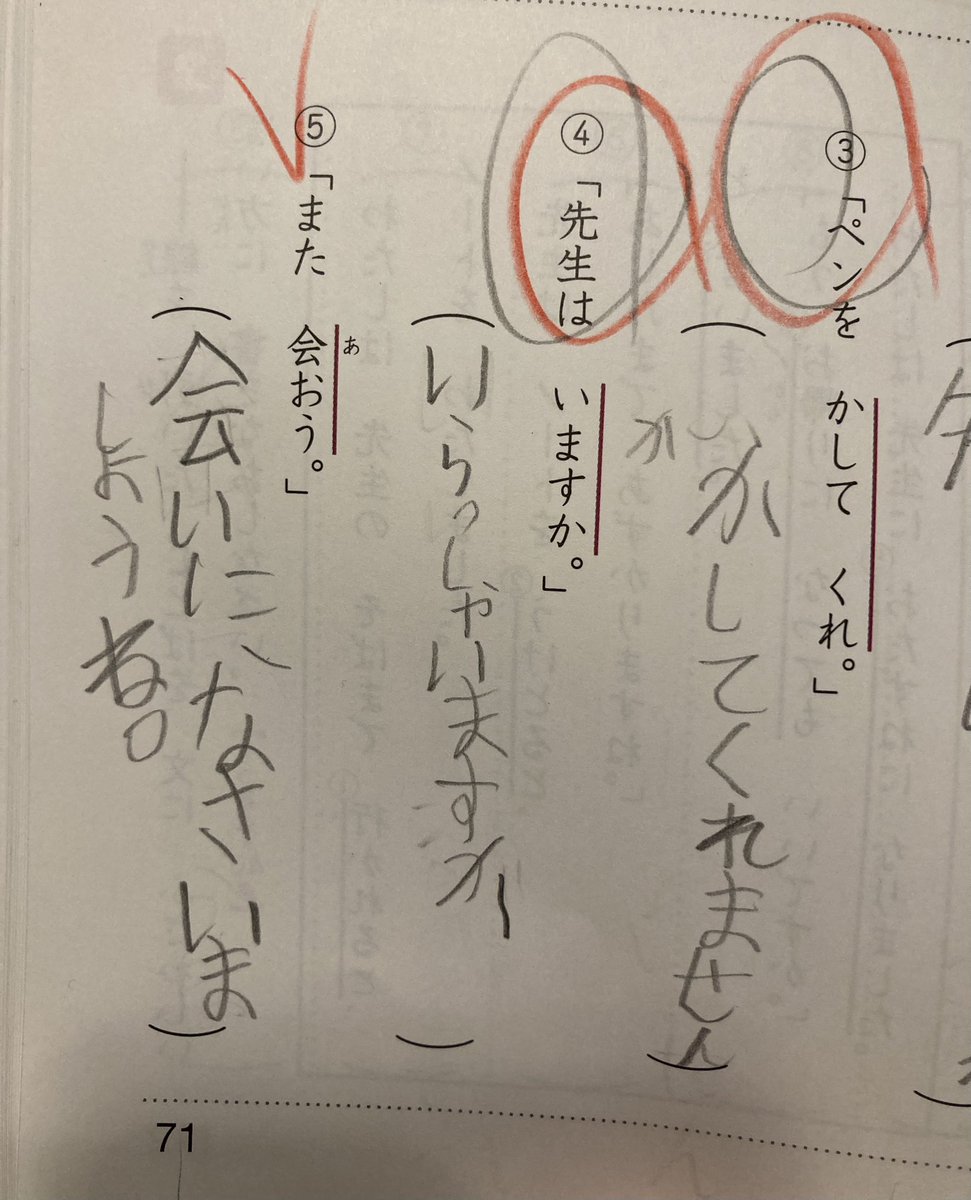 ③「ペンを かして くれ。」
（かしてくれません
か
④「先生は いますか。」
（いらっしゃいますか）
⑤「また 会おう。」
あ
（会いになさいま）
しょうね。
71